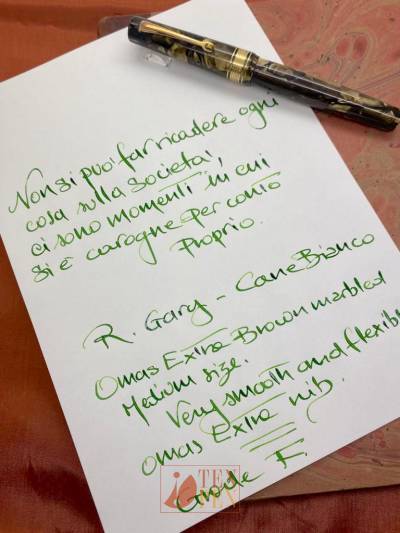 Non si può far ricadere ogni
cosa sulla società,
ci sono momenti in cui
si è carogne per conto
proprio.
R. Gary - Cane Bianco
Omas Extra Brown marbled
Medium size.
Very smooth and flexible
Omas Extra nib.
Grade F.
TEN
PEN